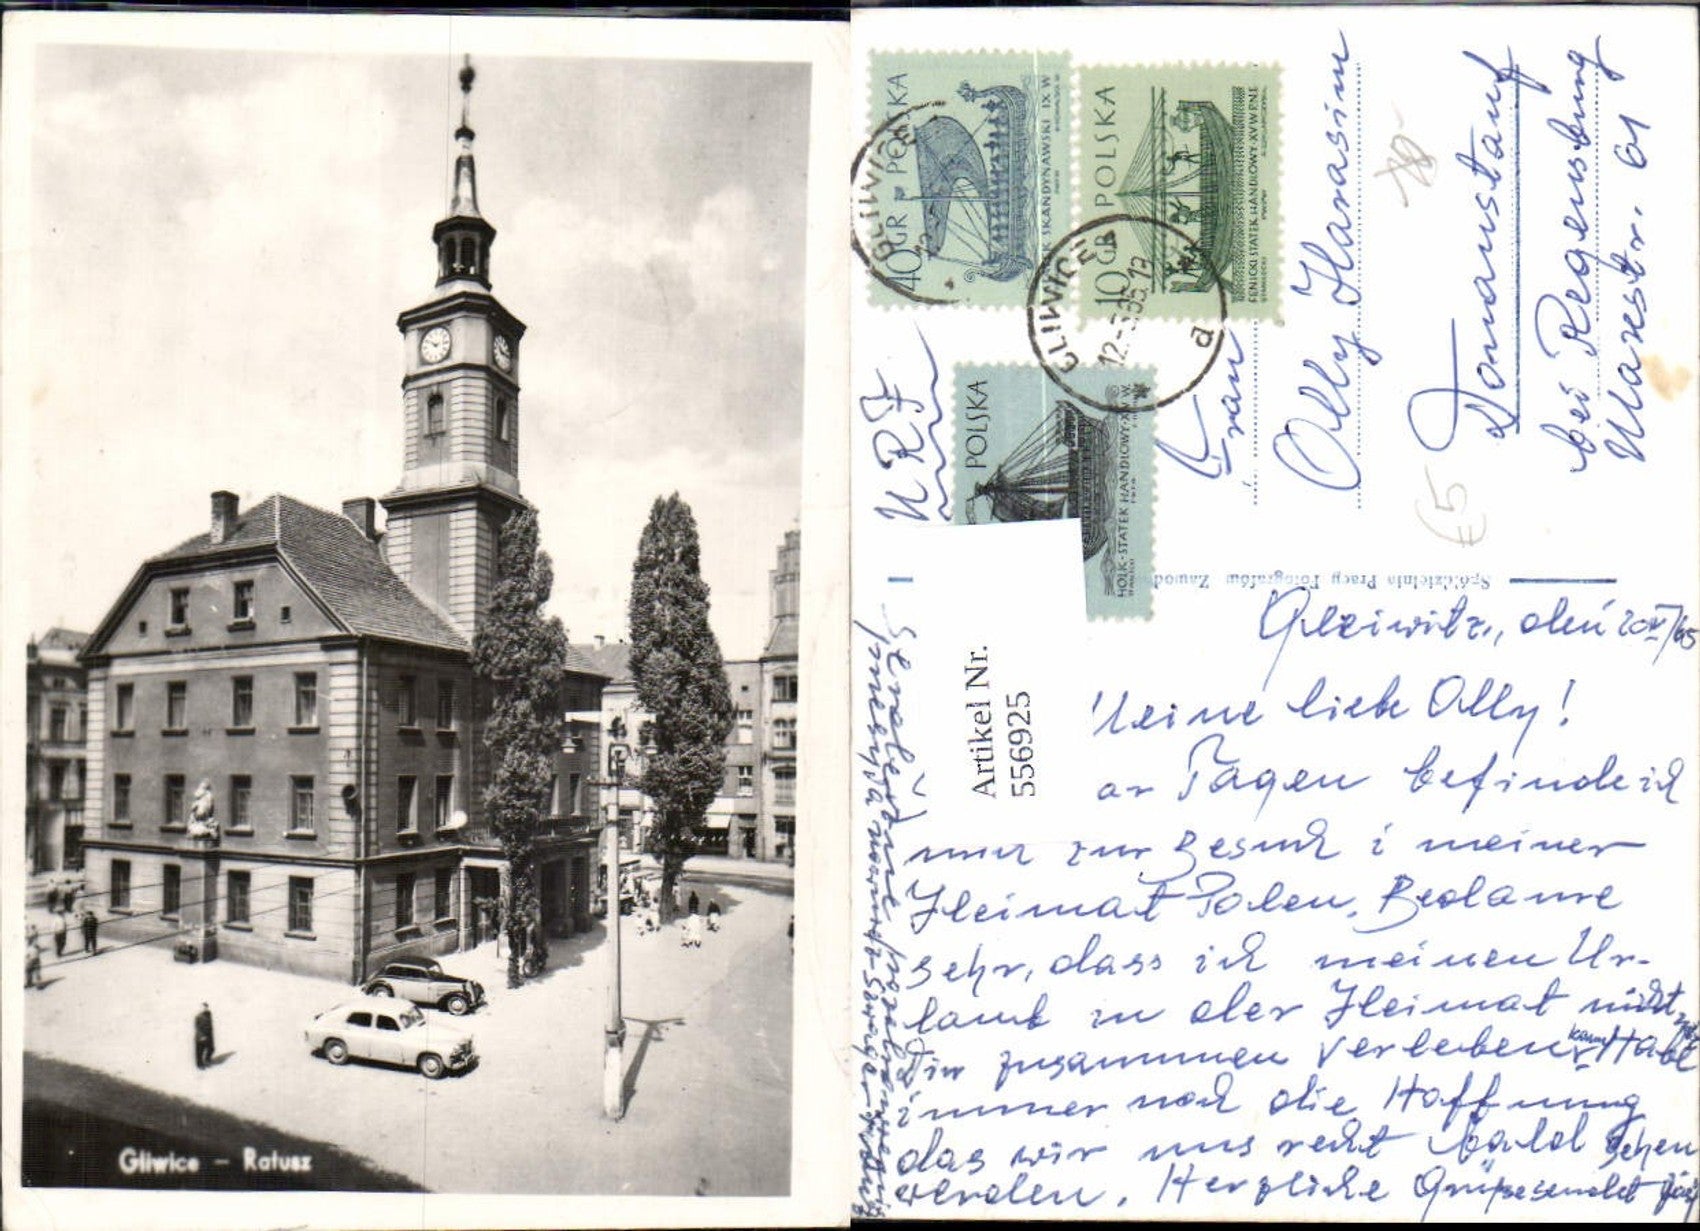 Gliwice - Ratusz
40 GR POLSKA
SKANDYNAWSKI IX W
10 GR POLSKA
FENICKI STATEK HANDLOWY·XV W P.N.E
POLSKA
HOLK·STATEK HANDLOWY·XIV W.
GLIWICE
GLIWICE
12.-3.65.17
a
NRF
Frau
Olly Harasim
Donaustauf
bei Regensburg
Marestr. 61
€5
Spółdzielnia Pracy Fotografów Zawod
Artikel Nr.
556925
Gleiwitz, den 20 IV/65
Meine liebe Olly!
ar Tagen befinde ich
mich zur Besuch i meiner
Heimat Polen. Bedaure
sehr, dass ich meinen Ur-
laub in der Heimat nicht mit
Dir zusammen verleben kann. Habe
immer noch die Hoffnung
das wir uns recht bald sehen
werden. Herzliche Grüße sendet